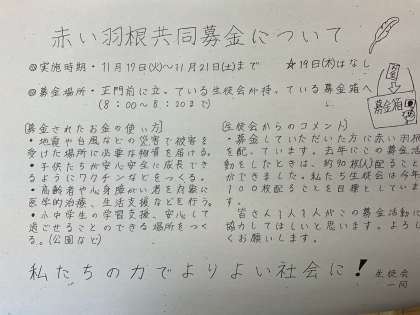 赤い羽根共同募金について
◎実施時期・11月17日(火)～11月21日(土)まで ☆19日(木)はなし
◎募金場所・正門前に立っている生徒会が持っている募金箱へ
(8:00～8:20まで)
図
募金箱
[募金されたお金の使い方]
・地震や台風などの災害で被害を
受けた場所に必要な物資を届ける。
・子供たちが安心安全に成長でき
るようにワクチンなどをつくる。
・高齢者や心身障がい者を対象に
医学的治療、生活支援などを行う。
・小中学生の学習支援、安心して
過ごせることのできる場所をつく
る。(公園など)
[生徒会からのコメント]
・募金していただいた方に赤い羽根
を配っています。去年にこの募金活
動をしたときは、約90枚(人)配ること
ができました。私たち生徒会は今年
100枚配ることを目標としていま
す。
皆さん1人1人がこの募金活動に
協力してほしいと思います。よろし
くお願いします。
私たちの力でよりよい社会に!
生徒会
一同